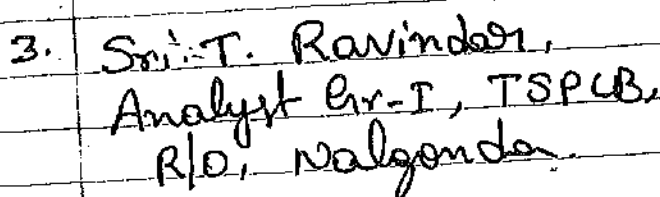 3. Sri:-T. Ravindar,
Analyst Gr-I, TSPCB,
R/O, Nalgonda.